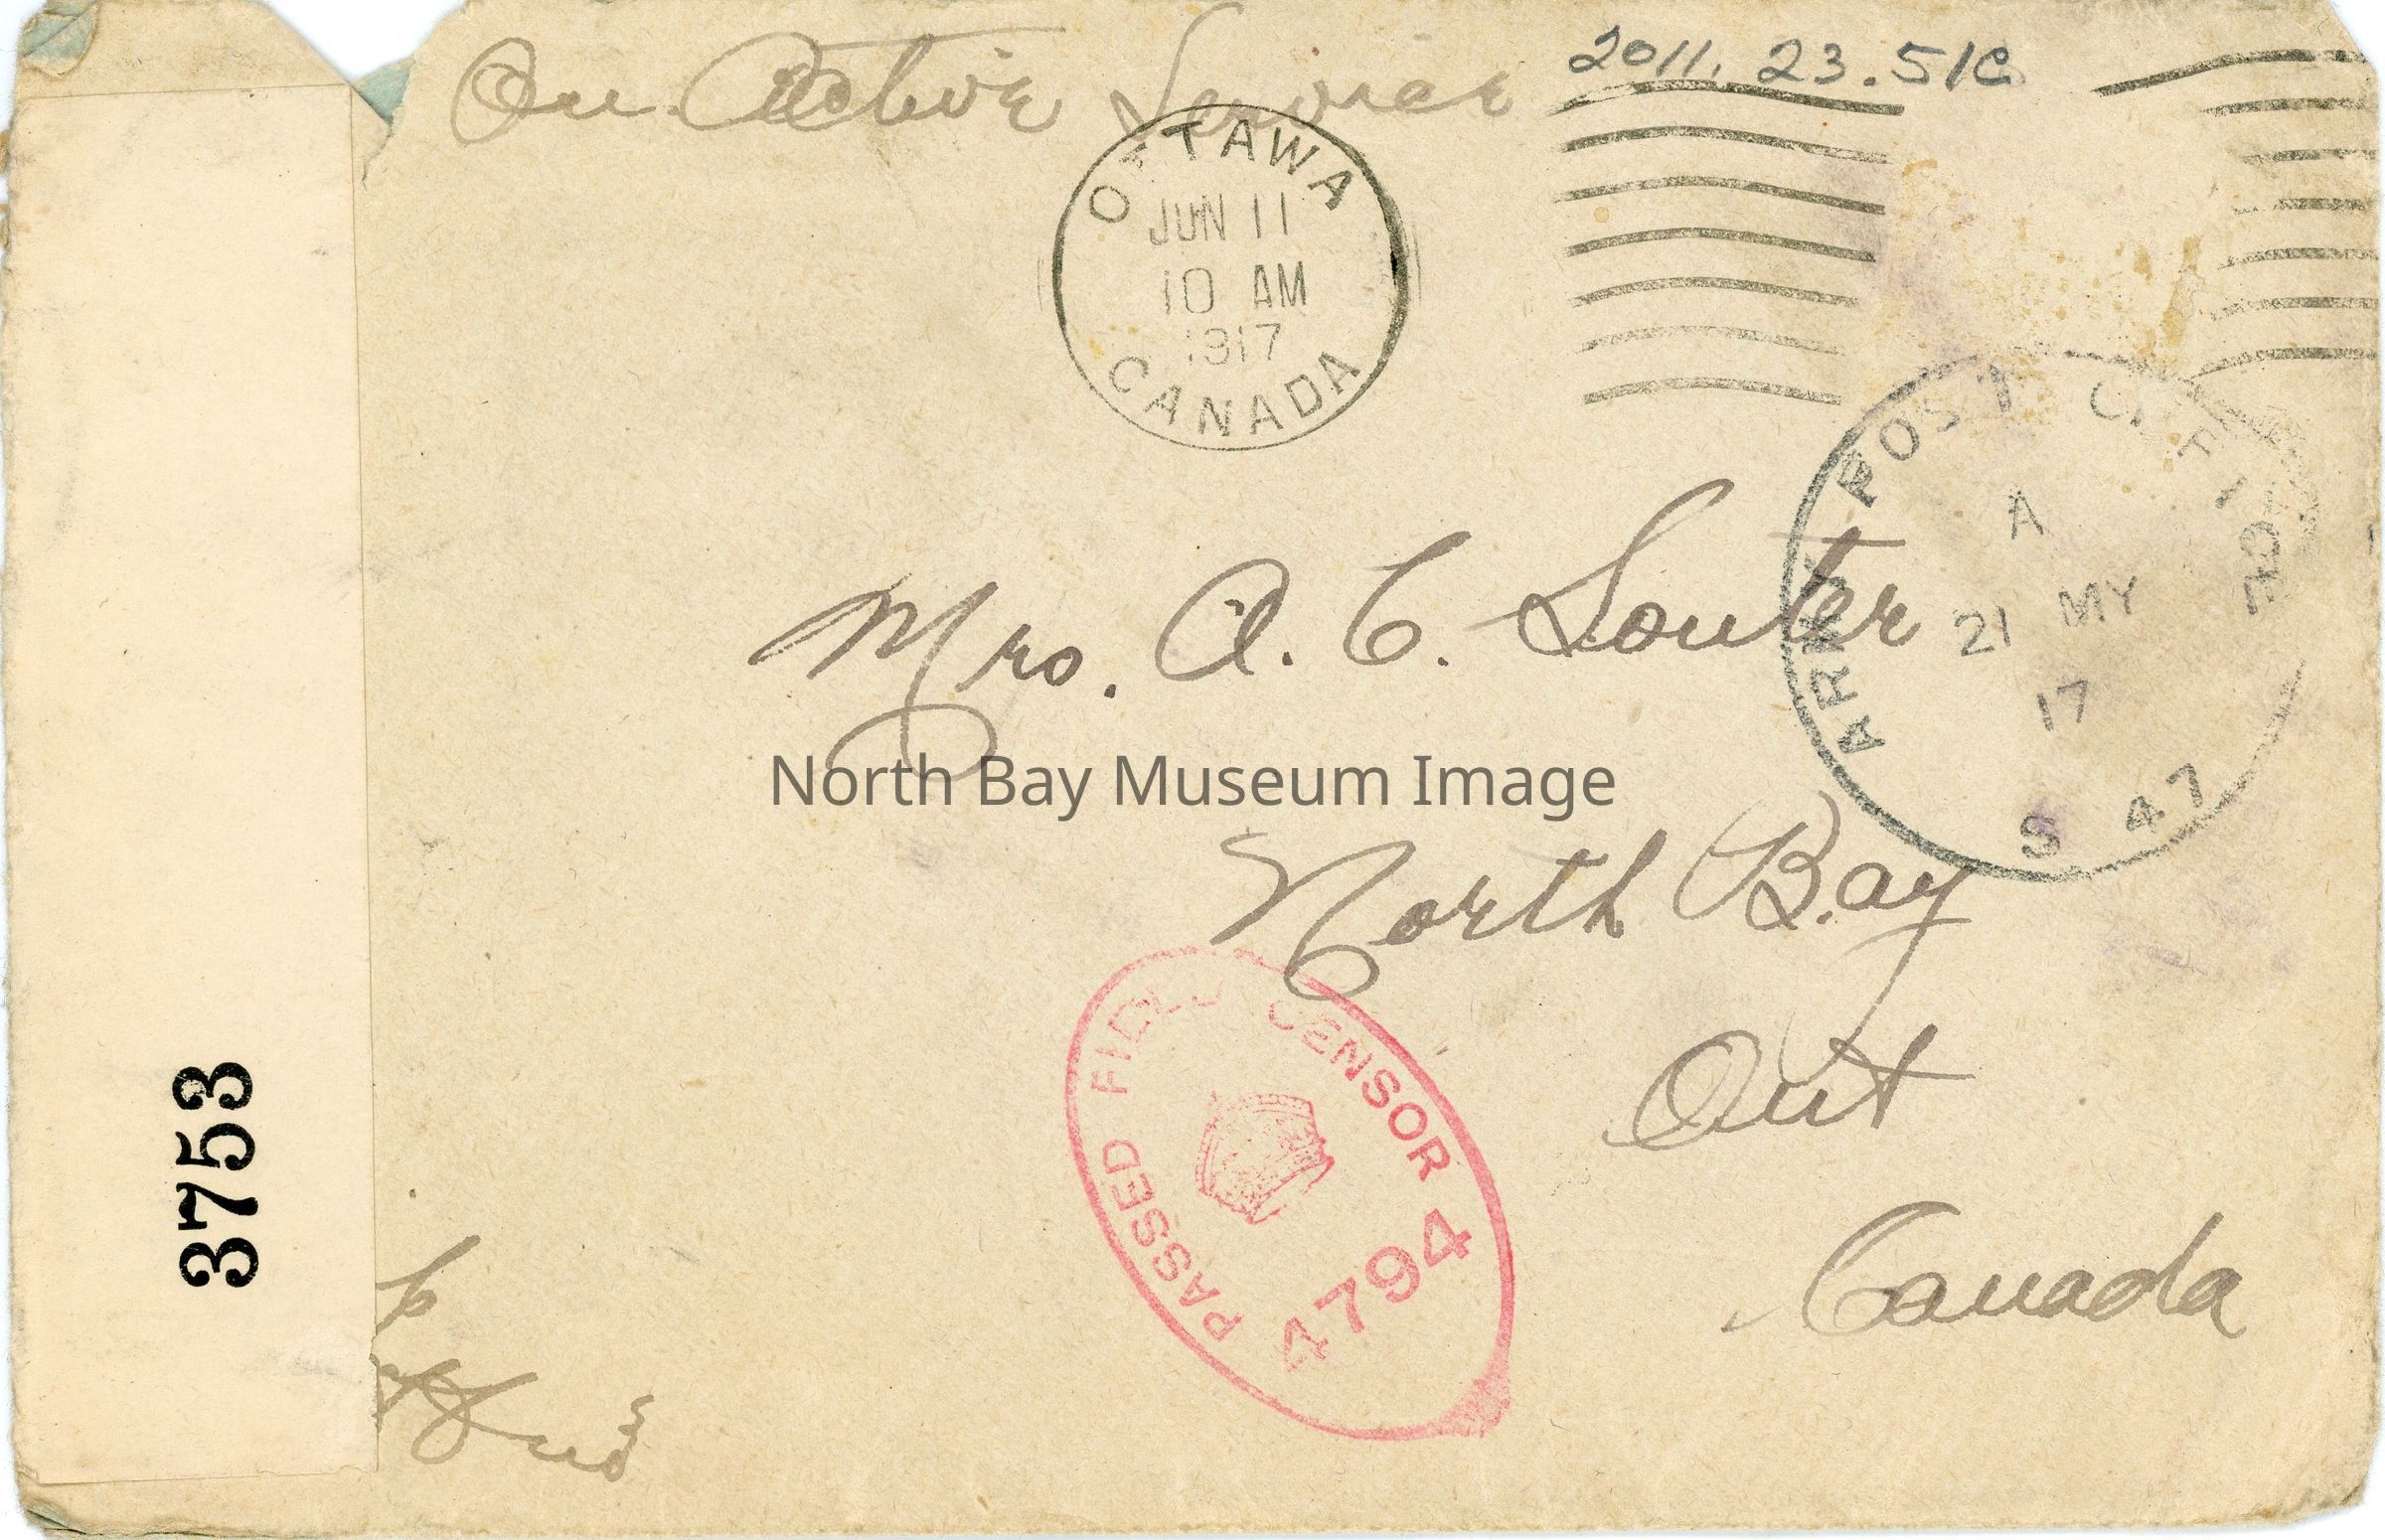 On Active Service
2011.23.51C
OTTAWA
JUN 11
10 AM
1917
CANADA
ARMY POST OFFICE
A
21 MY
17
S 47
Mrs. A. C. Souter
North Bay Museum Image
North Bay
Ont
Canada
PASSED FIELD CENSOR
4794
3753